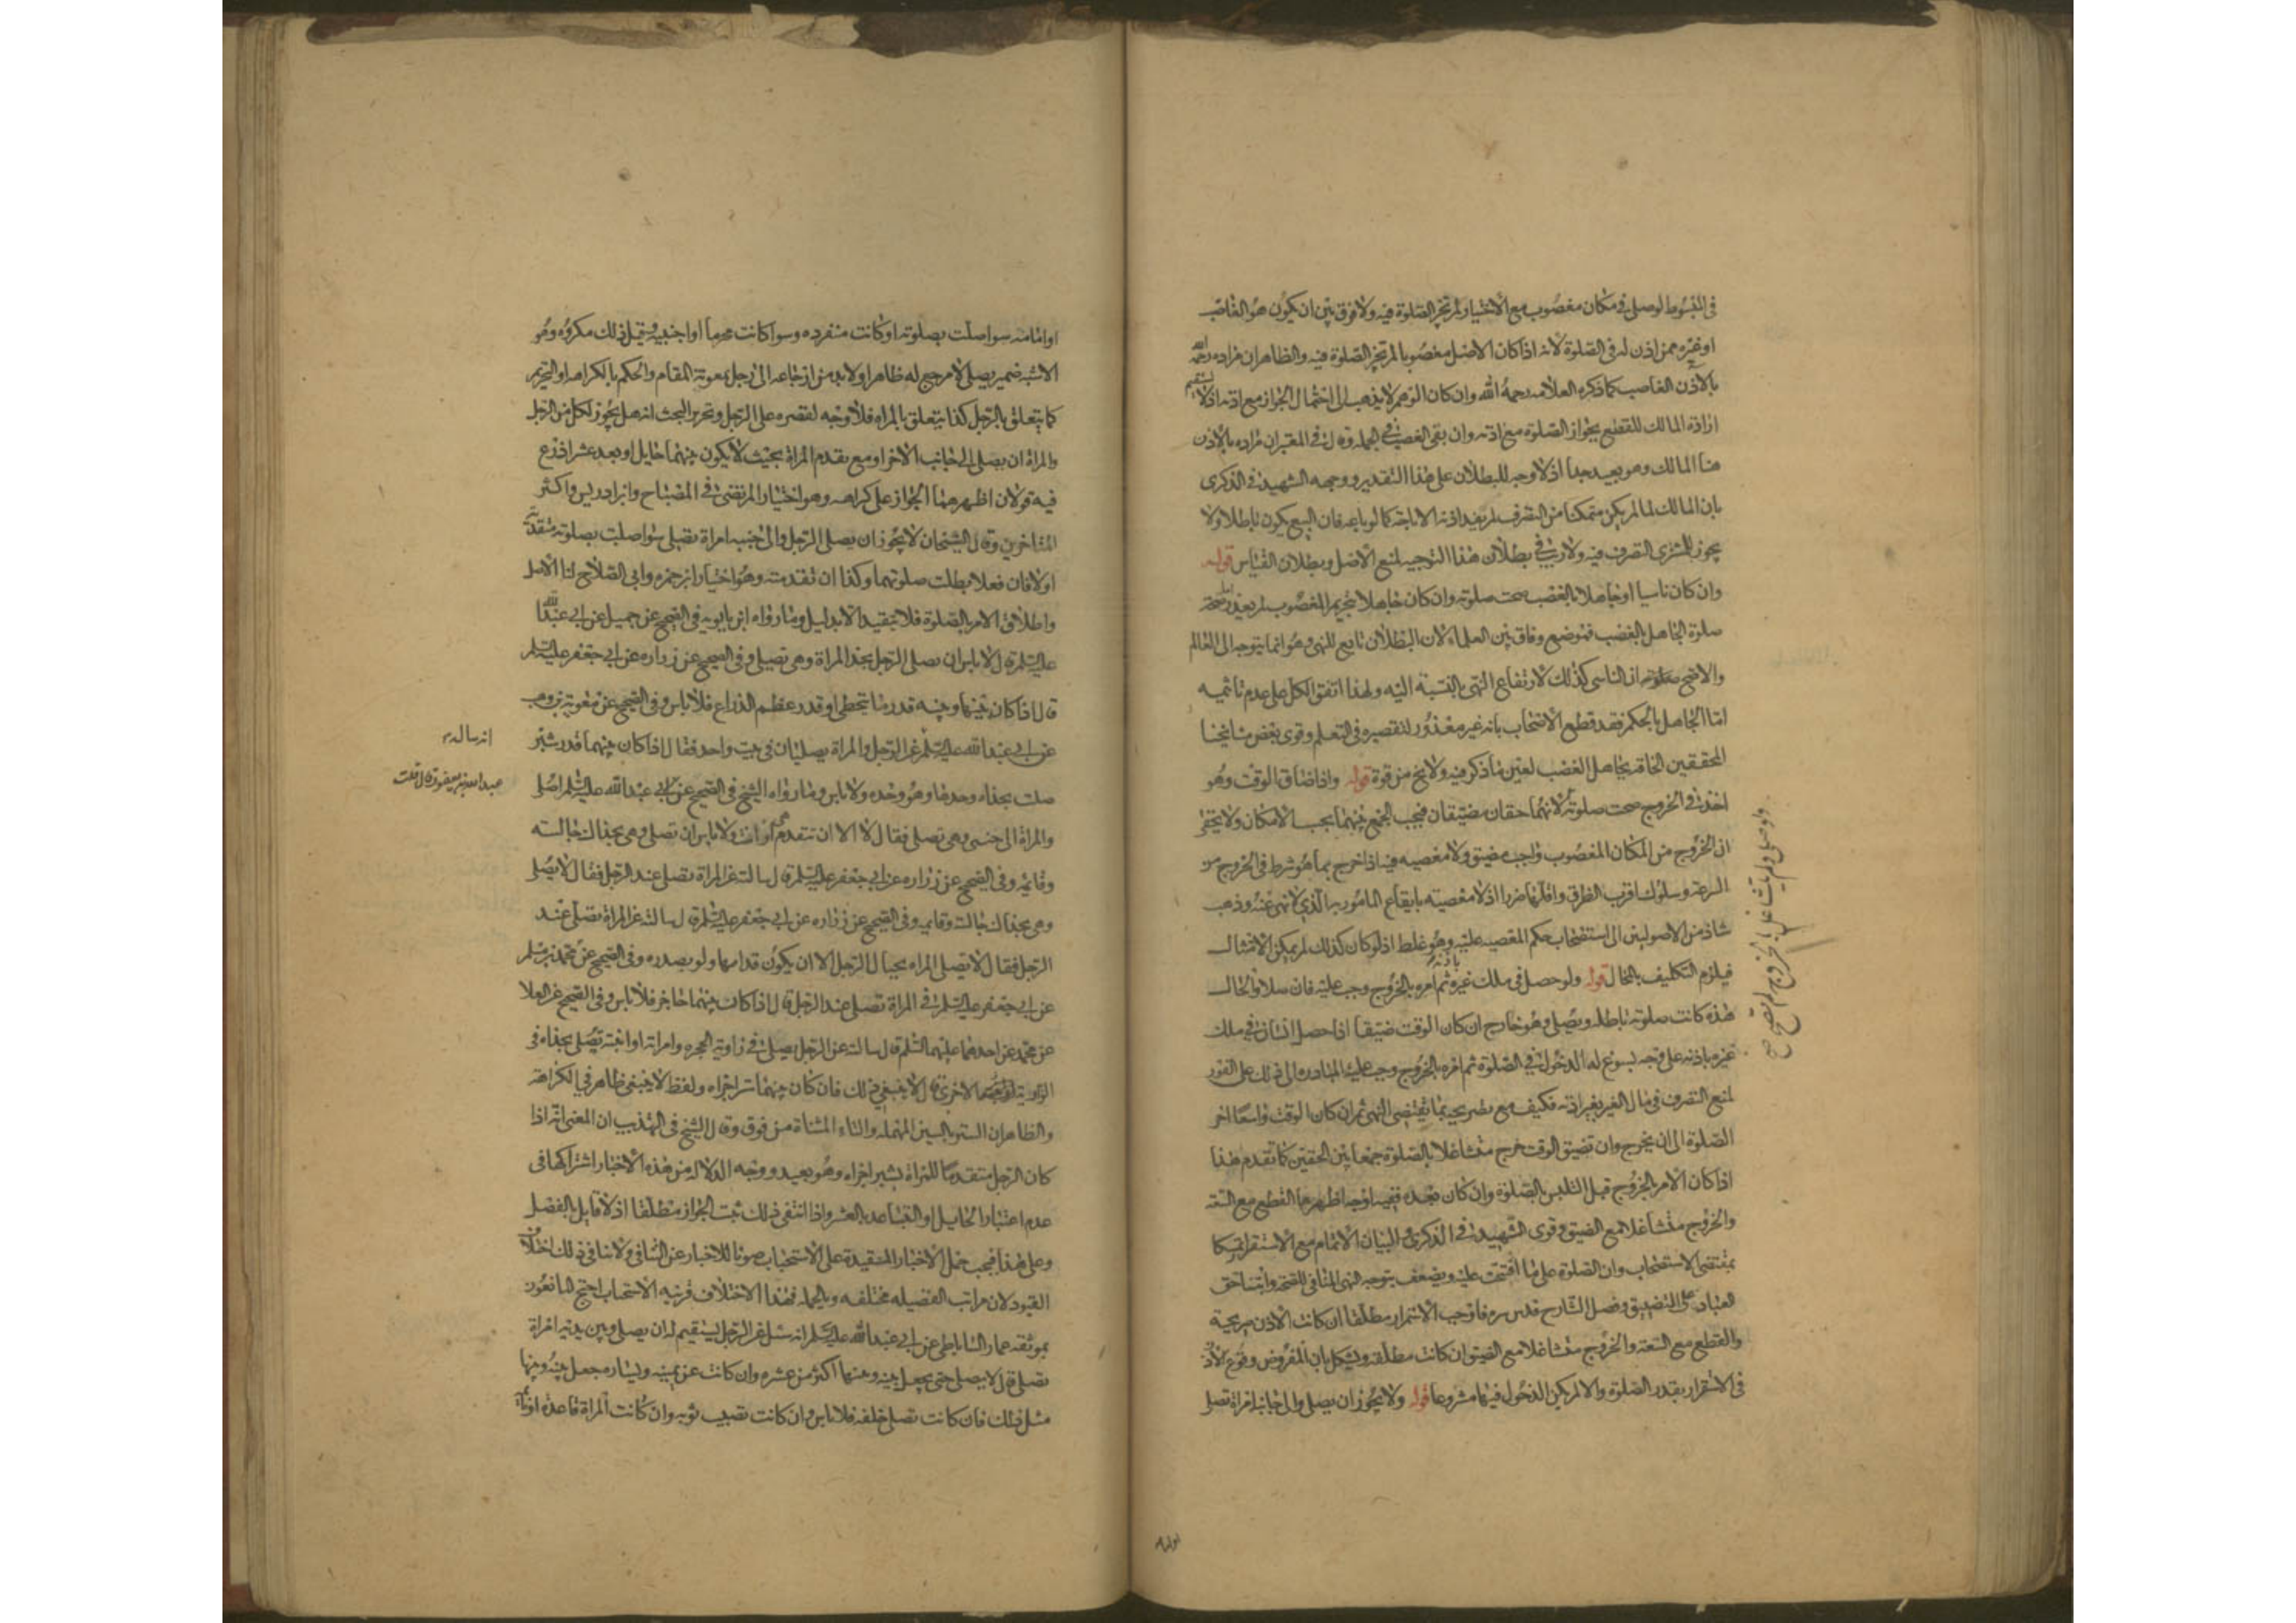 في المبسوط لو صلى في مكان مغصوب مع الاختيار لم تجز الصلوة فيه ولا فرق بين ان يكون هو الغاصب
او غيره ممن اذن له في الصلوة لانه اذا كان الاصل مغصوبا لم تجز الصلوة فيه والظاهر ان مراده رحمه الله
بالاذن الغاصب كما ذكره العلامه رحمه الله وان كان الوهم لا يذهب الى احتمال الجواز مع اذنه اذ لا يستقيم
ارادة المالك للقطع بجواز الصلوة مع اذنه وان بقى الغصب في الجمله وقال في المعتبر ان مراده بالاذن
هنا المالك وهو بعيد جدا اذ لا وجه للبطلان على هذا التقدير ووجهه الشهيد في الذكرى
بان المالك لما لم يكن متمكنا من التصرف لم يفد اذنه الاباحة كما لو باعه فان البيع يكون باطلا ولا
يجوز للمشترى التصرف فيه ولا ريب في بطلان هذا التوجيه لمنع الاصل وبطلان القياس قوله
وان كان ناسيا او جاهلا بالغصب صحت صلوته وان كان جاهلا بتحريم المغصوب لم يعذر اما صحة
صلوة الجاهل بالغصب فموضع وفاق بين العلماء لان البطلان تابع للنهى وهو انما يتوجه الى العالم
والاصح ان الناسى كذلك لارتفاع النهى بالنسبة اليه ولهذا اتفق الكل على عدم تاثيمه
اما الجاهل بالحكم فقد قطع الاصحاب بانه غير معذور لتقصيره في التعلم وقوى بعض مشايخنا
المحققين الحاقه بجاهل الغصب لعين ما ذكر فيه ولا يخ من قوة قوله واذا ضاق الوقت وهو
اخذ في الخروج صحت صلوته لانهما حقان مضيقان فيجب الجمع بينهما بحسب الامكان ولا يخفى
ان الخروج من المكان المغصوب واجب مضيق ولا معصيه فيه اذا خرج بما هو شرط في الخروج من
السرعة وسلوك اقرب الطرق واقلها ضررا اذ لا معصية بايقاع المامور به الذي لا نهى عنه وذهب
شاذ من الاصوليين الى استصحاب حكم المعصيه عليه وهو غلط اذ لو كان كذلك لم يمكن الامتثال
فيلزم التكليف بالمحال قوله ولو حصل في ملك غيره باذنه ثم امره بالخروج وجب عليه فان صلا والحال
هذه كانت صلوته باطله ويصلى وهو خارج ان كان الوقت ضيقا اذا حصل انسان في ملك
غيره باذنه على وجه يسوغ له الدخول في الصلوة ثم امره بالخروج وجب عليه المبادره الى ذلك على الفور
لمنع التصرف في مال الغير بغير اذنه فكيف مع تصريحه بما يقتضى النهى ثم ان كان الوقت واسعا اخر
الصلوة الى ان يخرج وان تضيق الوقت خرج متشاغلا بالصلوة جمعا بين الحقين كما تقدم هذا
اذا كان الامر بالخروج قبل التلبس بالصلوة وان كان بعده ففيه اوجه اظهرها القطع مع السعة
والخروج متشاغلا مع الضيق وقوى الشهيد في الذكرى والبيان الاتمام مع الاستقرار تمسكا
بمقتضى الاستصحاب وان الصلوة على ما افتتحت عليه ويضعف بتوجه النهى المنافى للصحة وابتناء حق
العباد على التضييق وفصل الشارح قدس سره فاوجب الاستمرار مطلقا ان كانت الاذن صريحة
والقطع مع السعة والخروج متشاغلا مع الضيق وان كانت مطلقه ويشكل بان المفروض وقوع الاذن
في الاستقرار بقدر الصلوة والا لم يكن الدخول فيها مشروعا قوله ولا يجوز ان يصلى والى جانبه امراة تصلى
ولو صلى ولم يتشاغل بالخروج لم تصح صح
او امامه سوا صلت بصلوته او كانت منفرده وسوا كانت محرما او اجنبيه وقيل ذلك مكروه وهو
الاشبه ضمير يصلى لا مرجع له ظاهرا ولا بد من ارجاعه الى رجل بمعونة المقام والحكم بالكراهه او التحريم
كما يتعلق بالرجل كذا يتعلق بالمراه فلا وجه لقصره على الرجل وتحرير البحث انه هل يجوز لكل من الرجل
والمراة ان يصلى الى جانب الاخر او مع تقدم المراة بحيث لا يكون بينهما حايل او بعد عشر اذرع
فيه قولان اظهرهما الجواز على كراهه وهو اختيار المرتضى في المصباح وابن ادريس واكثر
المتاخرين وقال الشيخان لا يجوز ان يصلى الرجل والى جنبه امراة تصلى سوا صلت بصلوته مقتدية
او لا فان فعلا بطلت صلوتهما وكذا ان تقدمته وهو اختيار ابن حمزه وابى الصلاح لنا الاصل
واطلاق الامر بالصلوة فلا يتقيد الا بدليل وما رواه ابن بابويه في الصحيح عن جميل عن ابى عبد الله
عليه السلم قال لا باس ان يصلى الرجل بحذا المراة وهى تصلى وفي الصحيح عن زراره عن ابى جعفر عليه السلم
قال اذا كان بينها وبينه قدر ما يتخطى او قدر عظم الذراع فلا باس وفي الصحيح عن معوية بن وهب
عن ابى عبد الله عليه السلم عن الرجل والمراة يصليان في بيت واحد فقال اذا كان بينهما قدر شبر
انه ساله
صلت بحذاه وحدها وهو وحده ولا باس وما رواه الشيخ في الصحيح عن ابى عبد الله عليه السلم اصلى
عبد الله بن يعفور قال قلت
والمراة الى جنبى وهى تصلى فقال لا الا ان تتقدم هى او انت ولا باس ان تصلى وهى بحذاك جالسه
وقائمه وفي الصحيح عن زراره عن ابى جعفر عليه السلم قال سالته عن المراة تصلى عند الرجل فقال لا تصلى
وهى بحذاك جالسه وقايمه وفي الصحيح عن زراره عن ابى جعفر عليه السلم قال سالته عن المراة تصلى عند
الرجل فقال لا تصلى المراه بحيال الرجل الا ان يكون قدامها ولو بصدره وفي الصحيح عن محمد بن مسلم
عن ابى جعفر عليه السلم في المراة تصلى عند الرجل قال اذا كان بينهما حاجز فلا باس وفي الصحيح عن العلا
عن محمد عن احدهما عليهما السلم قال سالته عن الرجل يصلى في زاوية الحجره وامراته او ابنته تصلى بحذاه في
الزاوية الاخرى قال لا ينبغى ذلك فان كان بينهما ستر اجزاه ولفظ لا ينبغى ظاهر في الكراهة
والظاهر ان الستر بالسين المهمله والتاء المثناة من فوق وقال الشيخ في التهذيب ان المعنى انه اذا
كان الرجل متقدما للمراة بشبر اجزاه وهو بعيد ووجه الدلاله من هذه الاخبار اشتراكها في
عدم اعتبار الحايل او التباعد بالعشر واذا انتفى ذلك ثبت الجواز مطلقا اذ لا قايل بالفصل
وعلى هذا فيجب حمل الاخبار المقيدة على الاستحباب صونا للاخبار عن التنافى ولا ينافى ذلك اختلاف
القيود لان مراتب الفضيله مختلفه وبالجمله فهذا الاختلاف قرينه الاستحباب احتج المانعون
بموثقه عمار الساباطى عن ابى عبد الله عليه السلم انه سئل عن الرجل يستقيم له ان يصلى وبين يديه امراة
تصلى قال لا يصلى حتى يجعل بينه وبينها اكثر من عشره وان كانت عن يمينه ويساره جعل بينه وبينها
مثل ذلك فان كانت تصلى خلفه فلا باس وان كانت تصيب ثوبه وان كانت المراة قاعده او نائمة